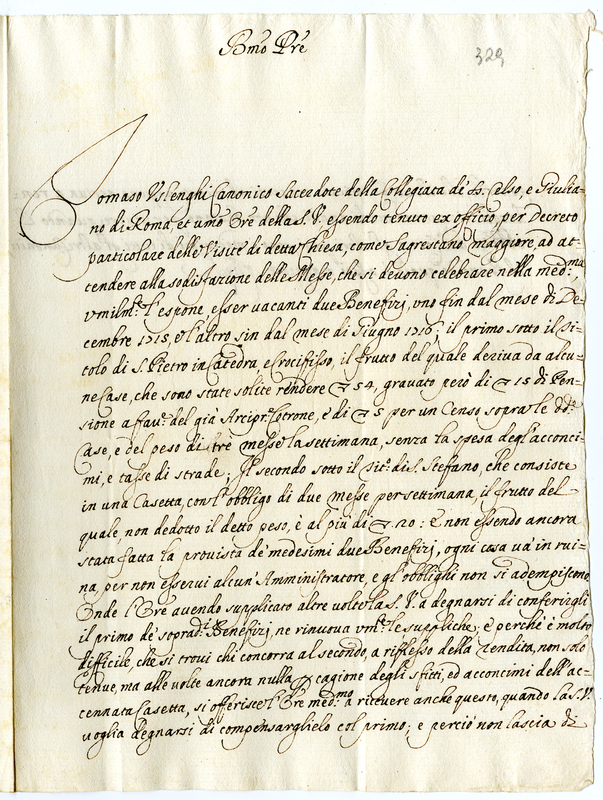 Bmõ Prẽ
329
Tomaso Uslenghi Canonico Sacerdote della Collegiata di SS. Celso, e Giulia=
no di Roma, et umõ Orẽ della S. V. essendo tenuto ex officio, per Decreto
particolare delle Visite di detta Chiesa, come Sagrestano maggiore, ad at=
tendere alla sodisfazione delle Messe, che si devono celebrare nella med.ma
vmilm.te l'espone, esser vacanti due Benefizj, vno fin dal mese di De=
cembre 1715, e l'altro sin dal mese di Giugno 1716; il primo sotto il Ti=
tolo di S. Pietro in Catedra, e Crocifisso, il frutto del quale deriva da alcu=
ne Case, che sono state solite rendere 54, gravato però di 15 di Pen=
sione a fav.e del già Arcipr. Cotrone, e di 5 per un Censo sopra le dd.e
Case, e del peso di trè messe la settimana, senza la spesa degl'acconci=
mi, e tasse di strade; Il secondo sotto il Tit.o di S. Stefano, che consiste
in una Casetta, con l'obbligo di due messe per settimana, il frutto del
quale, non dedotto il detto peso, è al più di 20: E non essendo ancora
stata fatta la provista de' medesimi due Benefizj, ogni cosa và in rui=
na, per non esservi alcun'Amministratore, e gl'obblighi non si adempiscono
Onde l'Orẽ avendo supplicato altre volte la S. V. a degnarsi di conferirgli
il primo de' soprad.i Benefizj, ne rinuova vm.te le suppliche; e perchè è molto
difficile, che si trovi chi concorra al secondo, a riflesso della rendita, non solo
tenue, ma alle volte ancora nulla cagione degli sfitti, ed acconcimi dell'ac=
cennata Casetta, si offerisce l'Orẽ med.mo a ricevere anche questo, quando la S. V.
voglia degnarsi di compensarglielo col primo; e perciò non lascia di